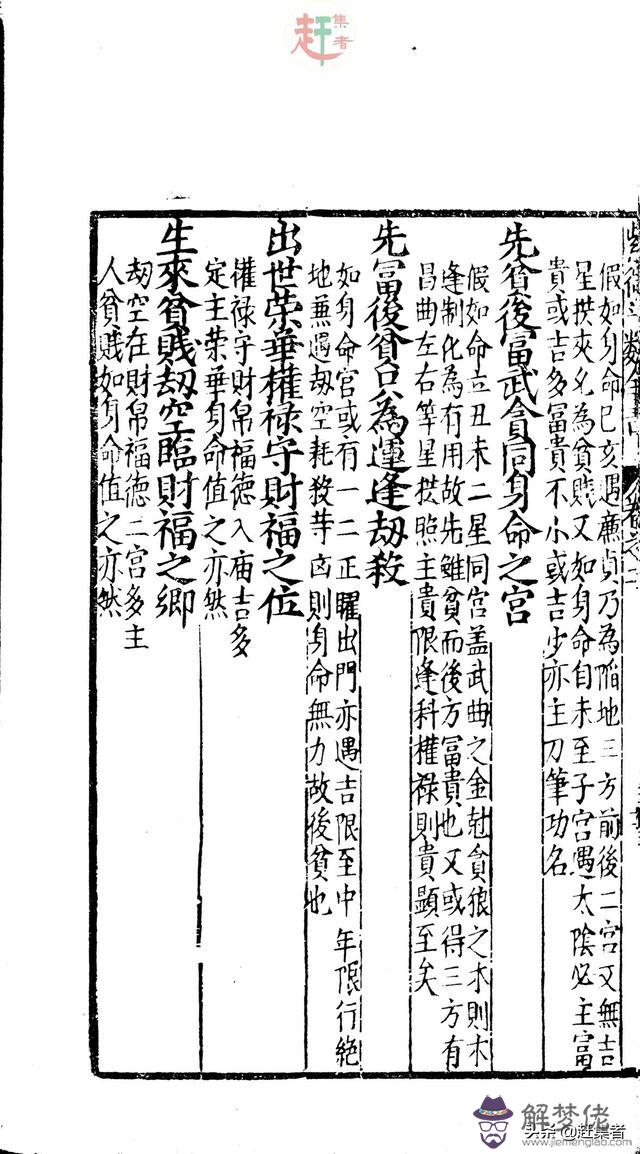 赶集者
假如身命巳亥遇廉貞乃為陷地三方前後二宮又無吉
星拱夾必為貧賤又如身命自未至子宮遇太陰必主富
貴或吉多富貴不小或吉少亦主刀筆功名
先貧後富武貪同身命之宮
假如命立丑未二星同宮盖武曲之金尅貪狼之木則木
逢制化為有用故先雖貧而後方富貴也又或得三方有
昌曲左右等星拱照主貴限逢科權禄則貴顯至矣
先富後貧只為運逢劫殺
如身命宮或有一二正曜出門亦遇吉限至中年限行絶
地兼遇劫空耗殺等凶則身命無力故後貧也
出世荣華權禄守財福之位
權禄守財帛福德入庙吉多
定主荣華身命值之亦然
生來貧賤劫空臨財福之鄉
劫空在財帛福德二宮多主
人貧贱如身命值之亦然
解梦佬
头条@赶集者
www.jiemenglao1.com